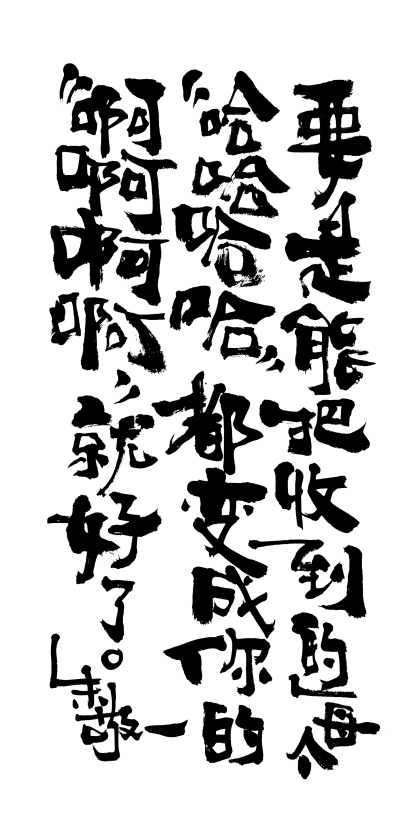 要是能把收到的每个
“哈哈哈哈”都变成你的
“啊啊啊啊”就好了。
朱敬一